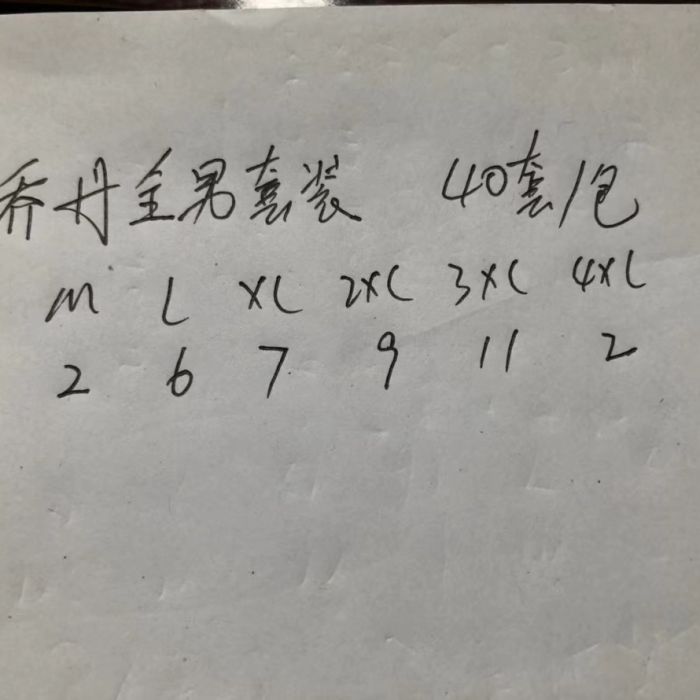 乔丹全男套装 40套/包
M L XL 2XL 3XL 4XL
2 6 7 9 11 2